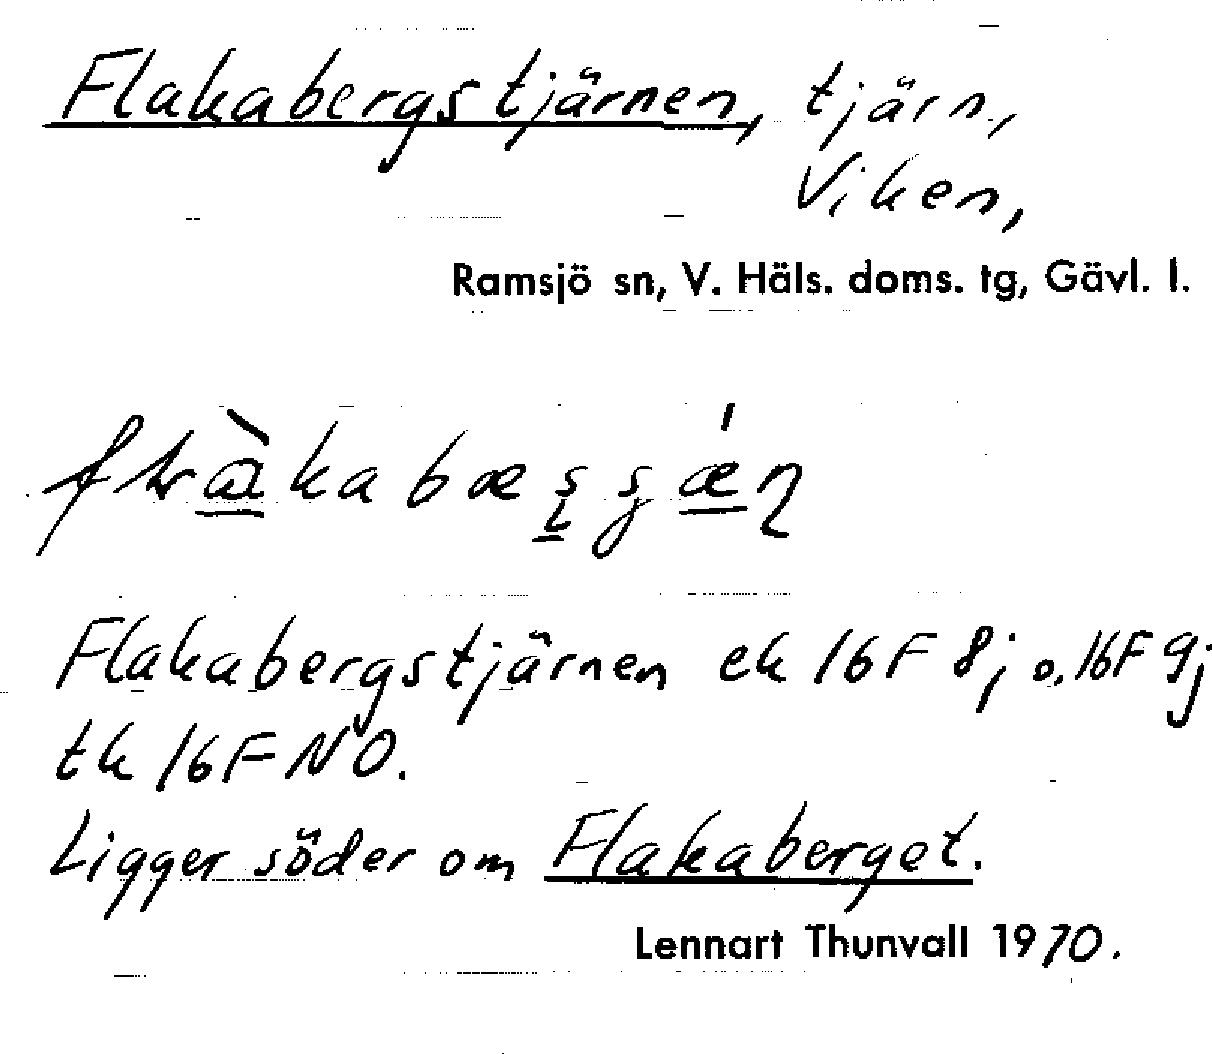 Flakabergstjärnen, tjärn,
Viken,
Ramsjö sn, V. Häls. doms. tg, Gävl. l.
Flakabergstjärnen ek 16F 8j o. 16F 9j
tk 16F NO.
Ligger söder om Flakaberget.
Lennart Thunvall 1970.